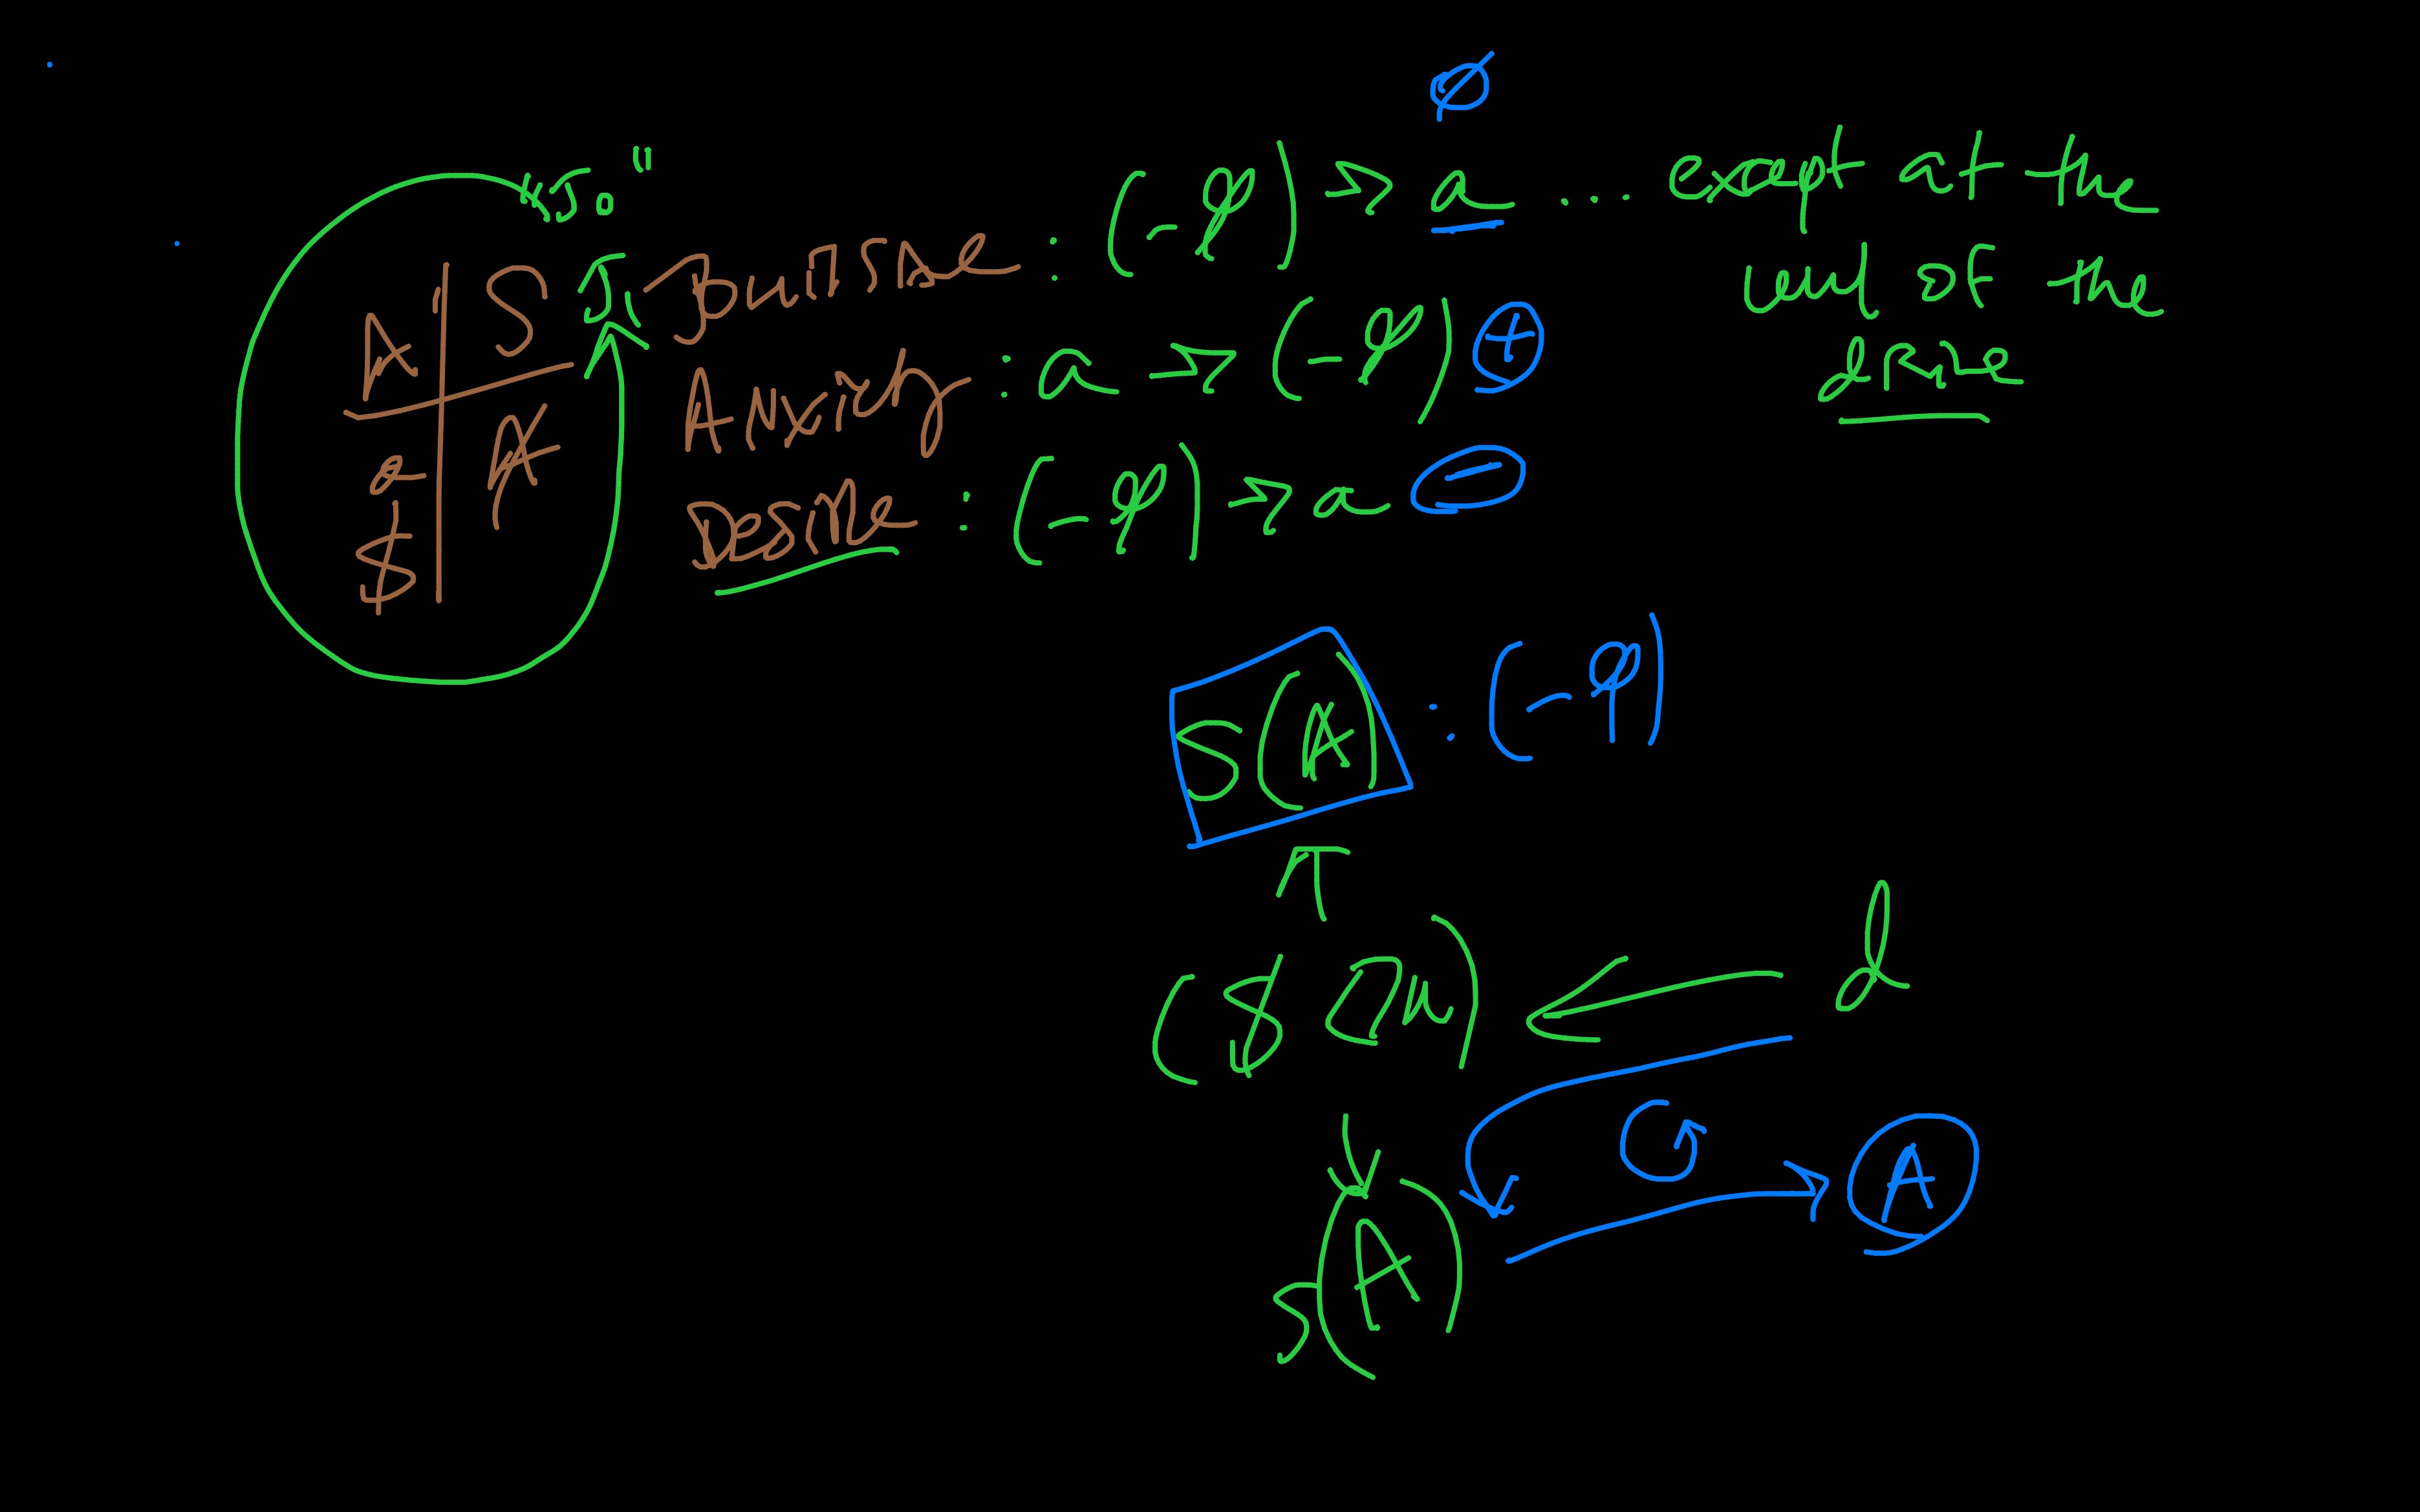 "J₀"
A | S J₁ Jouissance : (-φ) → a ... except at the
∅
level of the
drive
a | Ⱥ Anxiety : a → (-φ) +
$ | Desire : (-φ) → a −
S(Ⱥ) : (-φ)
↑
($ ◇ D) ← d
↓
s(A) → A